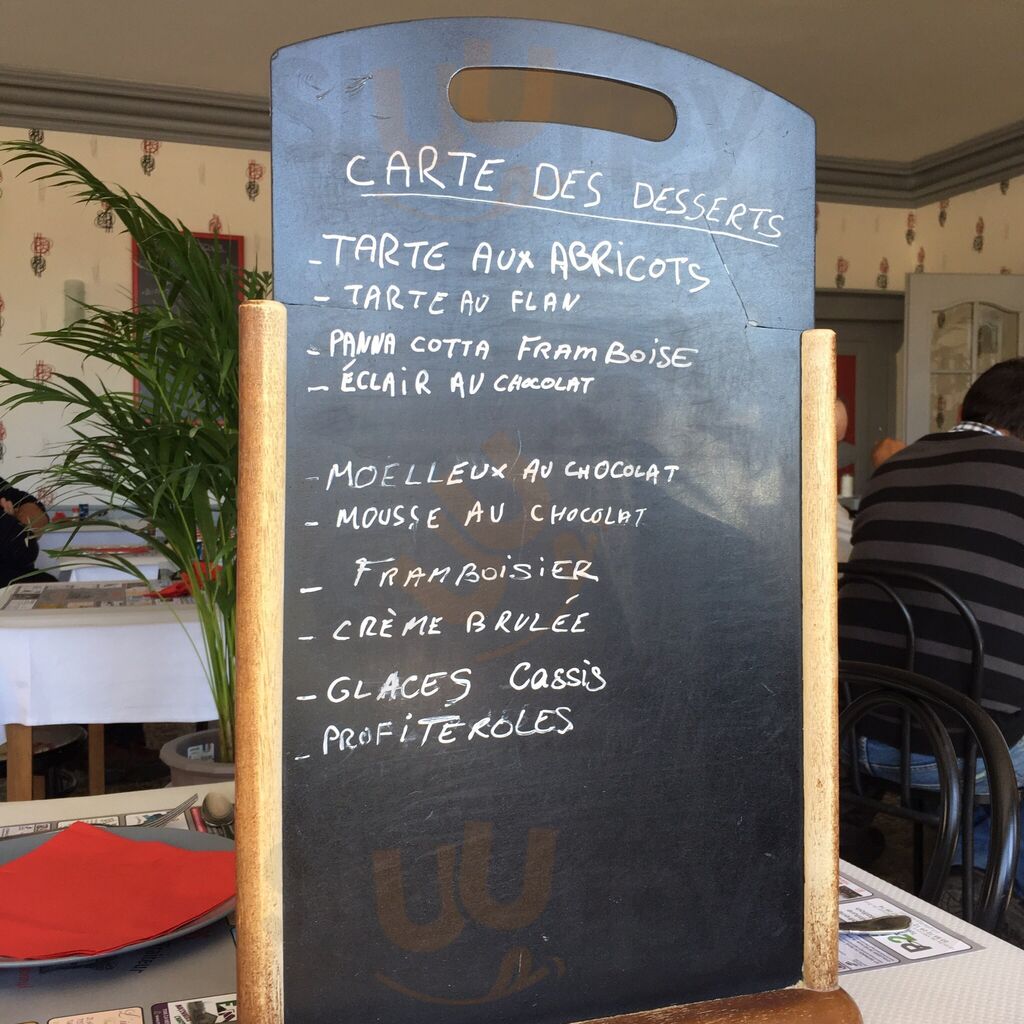 CARTE DES DESSERTS
- TARTE AUX ABRICOTS
- TARTE AU FLAN
- PANNA COTTA FRAMBOISE
- ÉCLAIR AU CHOCOLAT
- MOELLEUX AU CHOCOLAT
- MOUSSE AU CHOCOLAT
- FRAMBOISIER
- CRÈME BRULÉE
- GLACES CASSIS
- PROFITEROLES